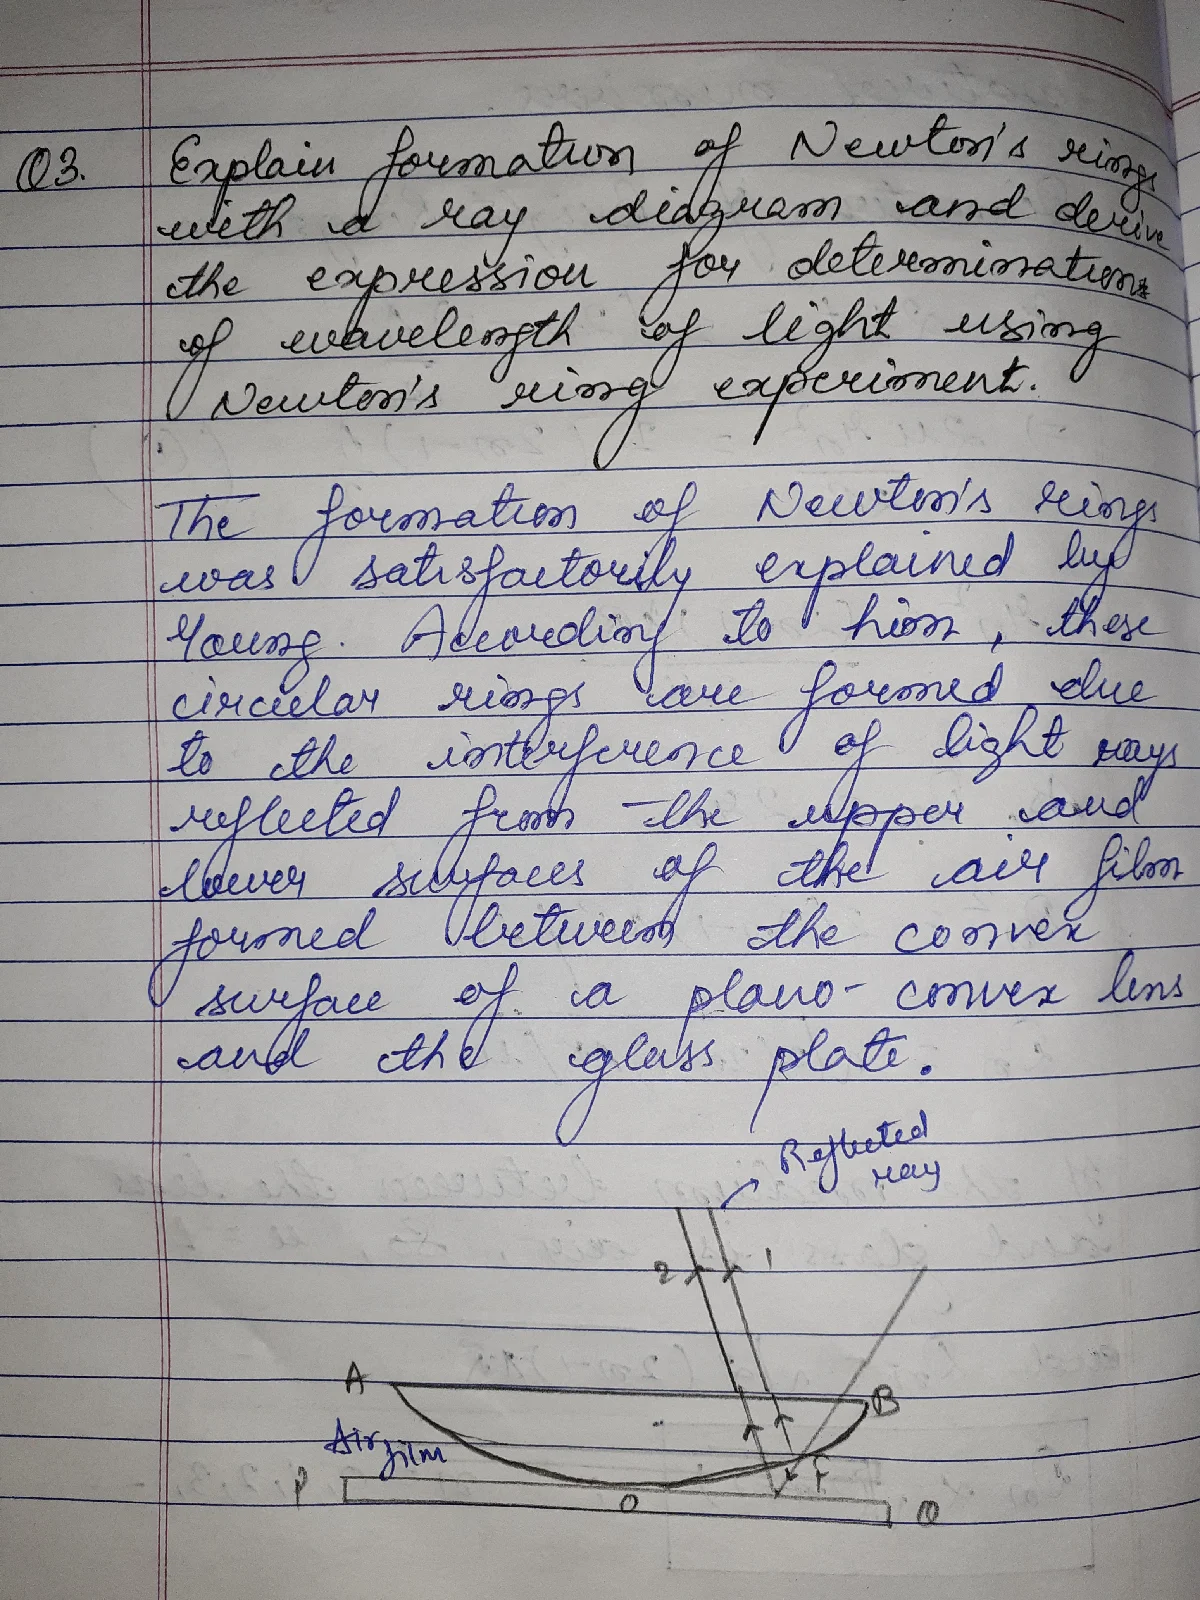 Q3. Explain formation of Newton's rings
with a ray diagram and derive
the expression for determination
of wavelength of light using
Newton's ring experiment.
The formation of Newton's rings
was satisfactorily explained by
Young. According to him, these
circular rings are formed due
to the interference of light rays
reflected from the upper and
lower surfaces of the air film
formed between the convex
surface of a plano-convex lens
and the glass plate.
Reflected
ray
2 1
A B
Air
film
P O F Q